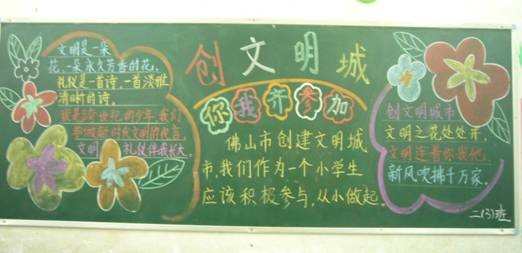 文明是一朵
花、一朵永久芳香的花。
礼仪是一首诗,一首淡雅
清晰的诗。
文明 礼仪伴我长大。
创文明城
你我齐参加
佛山市创建文明城
市,我们作为一个小学生
应该积极参与,从小做起。
创文明城市
文明之花处处开,
文明连着你我他,
新风吹拂千万家。
二(3)班